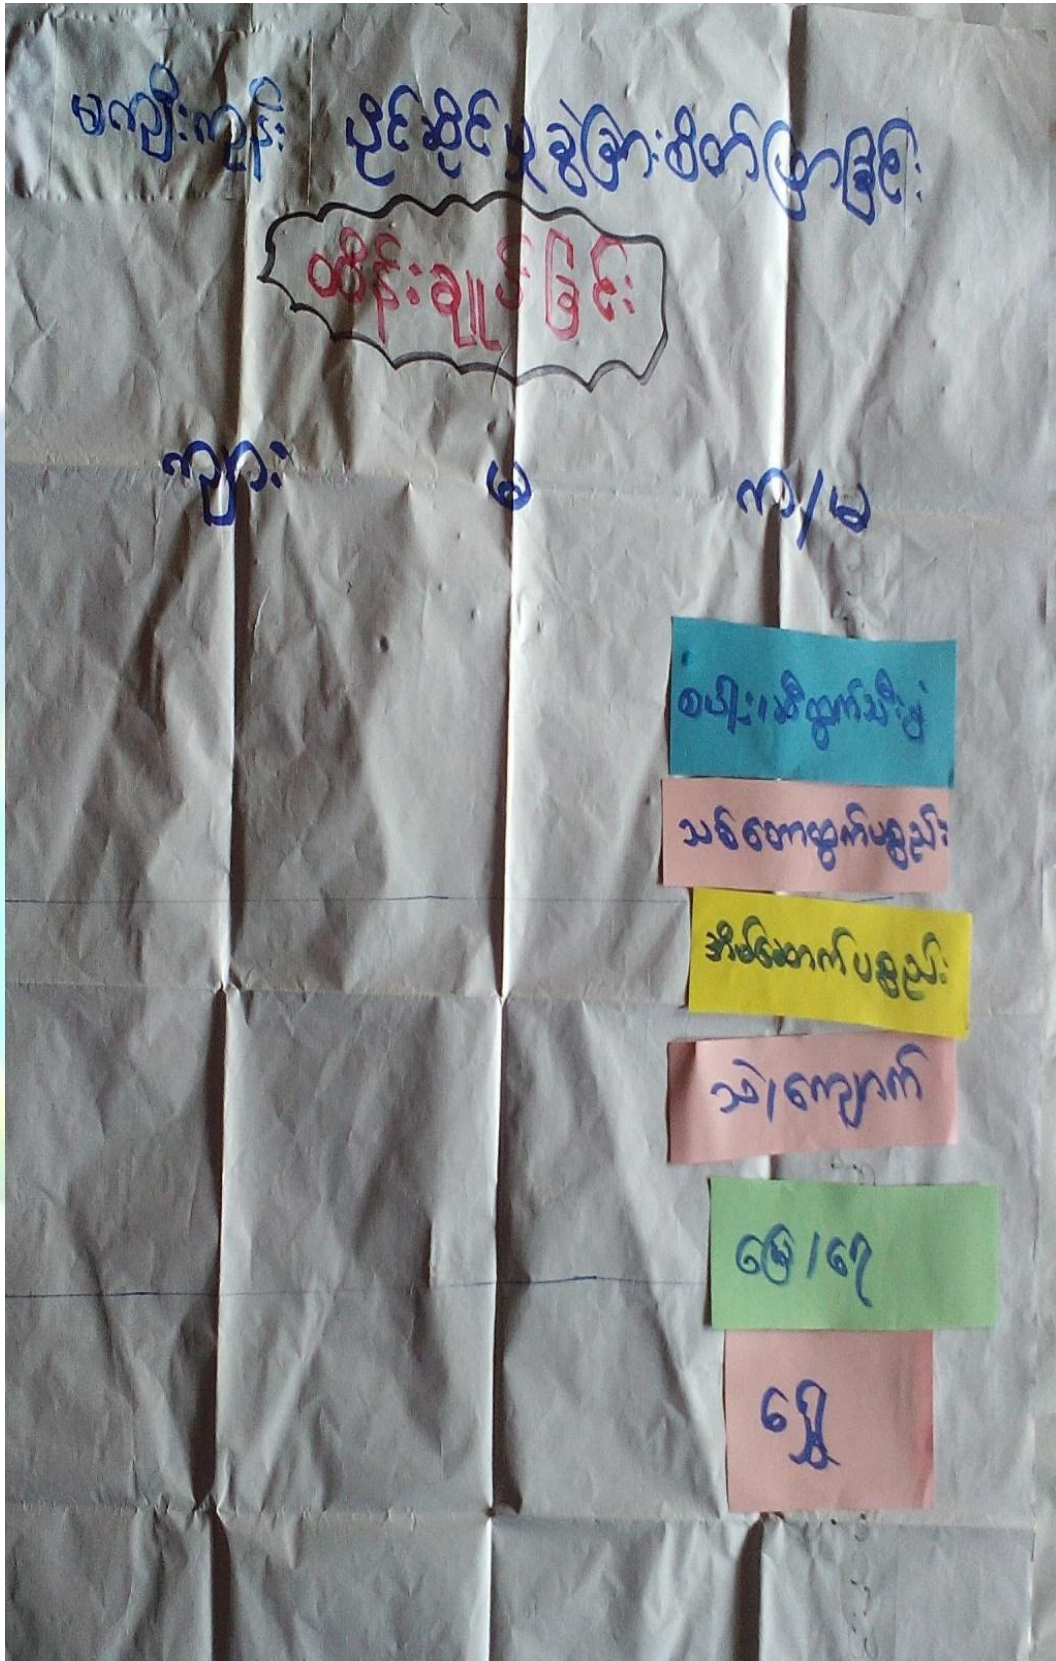 မကျီးကုန်း ပိုင်ဆိုင်မှု ခွဲခြားစိတ်ဖြာခြင်း
ထိန်းချုပ်ခြင်း
ကျား မ ကျ/မ
စပါး၊ဆီထွက်သီးနှံ
သစ်တောထွက်ပစ္စည်း
အိမ်ဆောက်ပစ္စည်း
သဲ/ကျောက်
မြေ/ရေ
ရွှေ